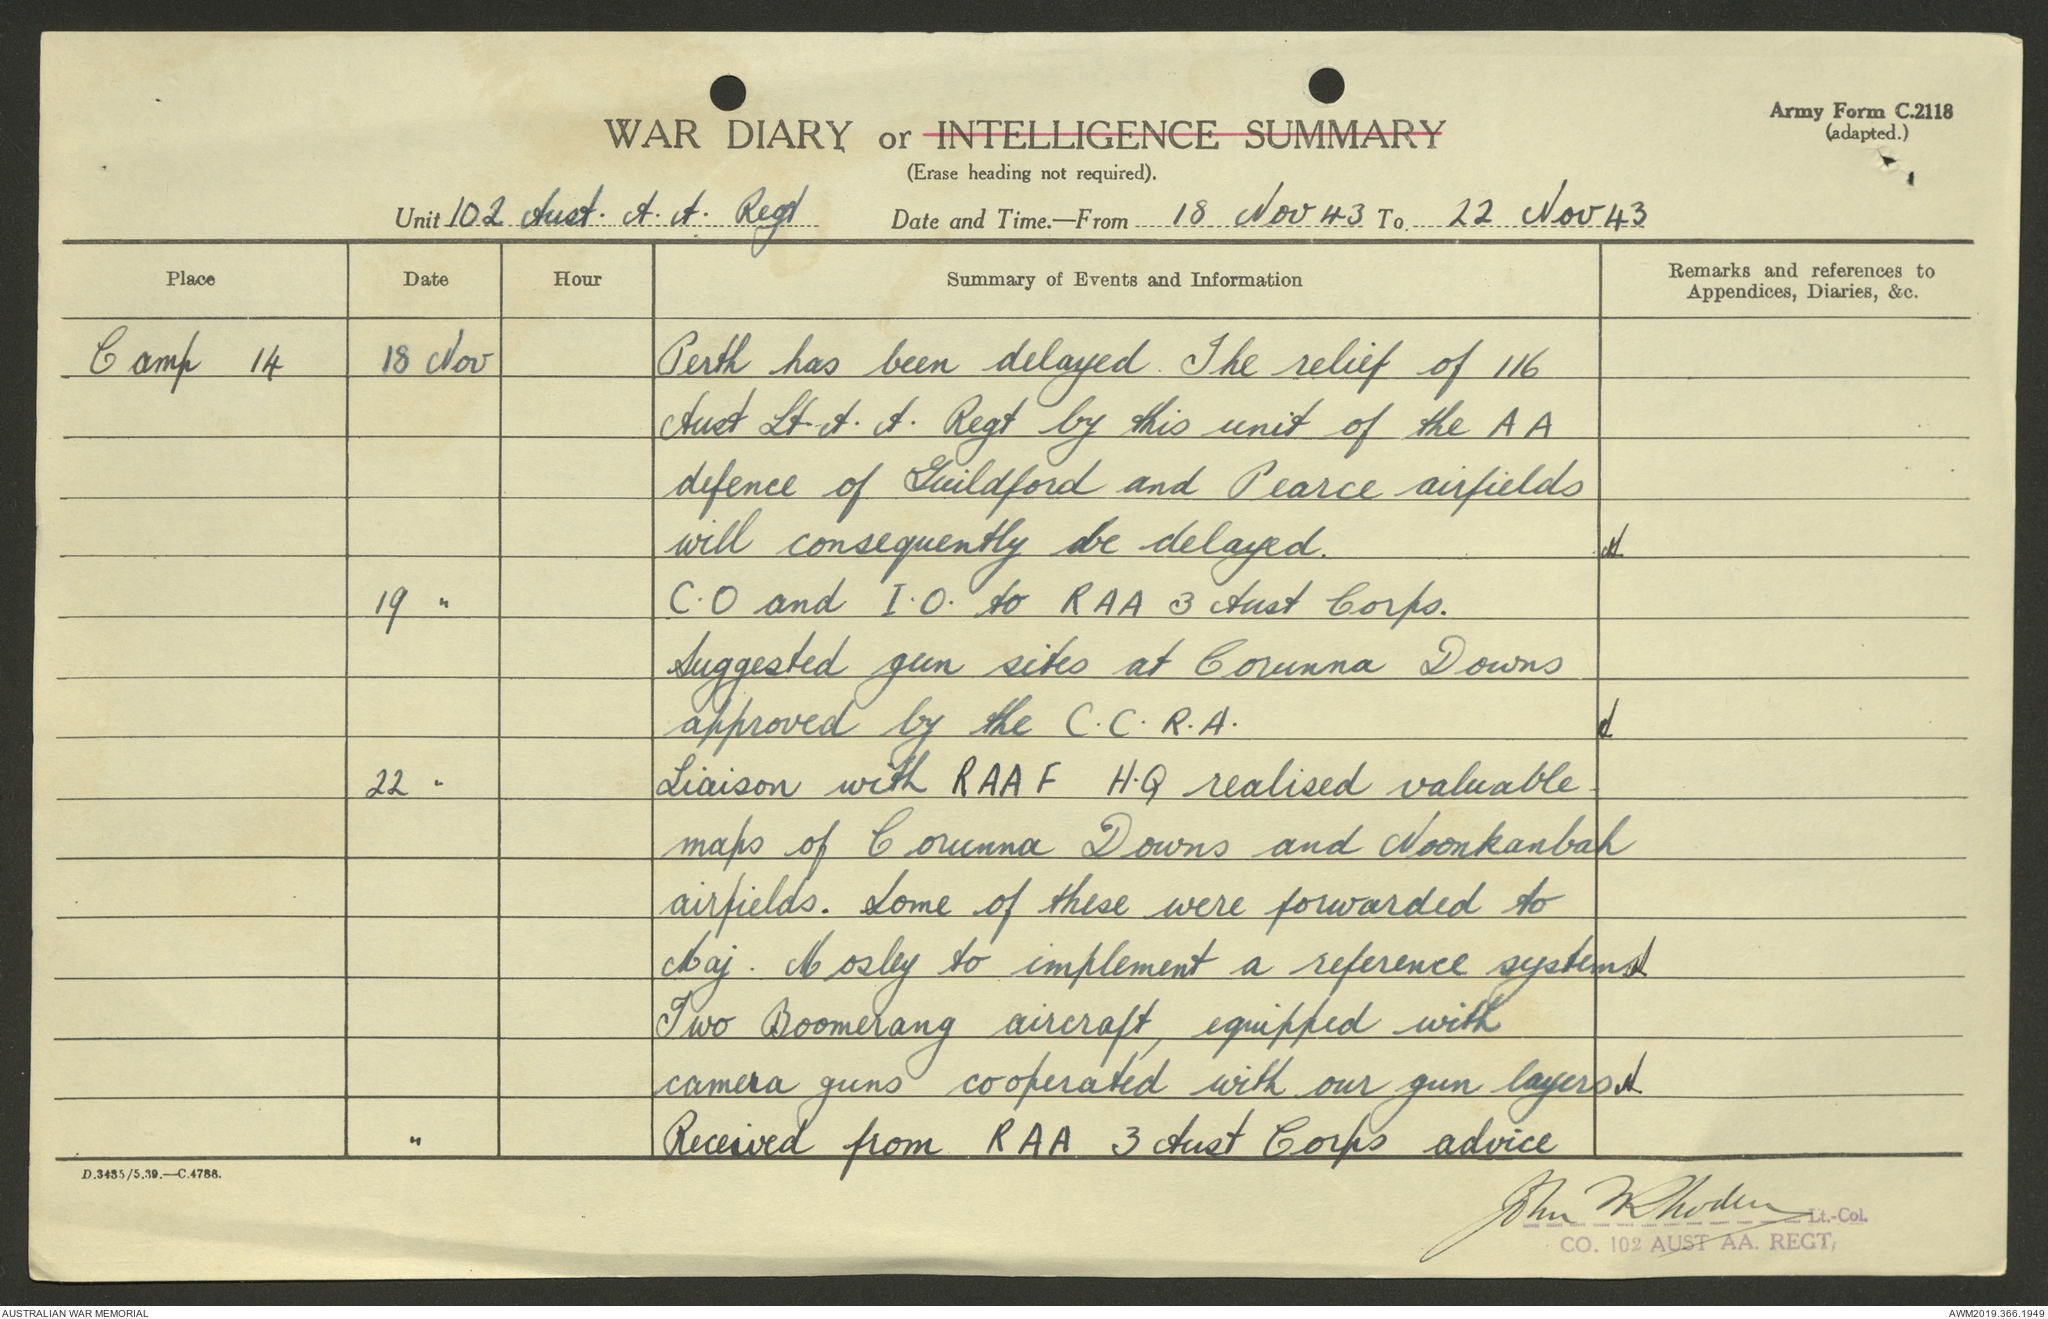 Army Form C.2118
(adapted.)
WAR DIARY or INTELLIGENCE SUMMARY
(Erase heading not required).
Unit 102 Aust. A. A. Regt Date and Time.—From 18 Nov 43 To 22 Nov 43
Place Date Hour Summary of Events and Information Remarks and references to
Appendices, Diaries, &c.
Camp 14 18 Nov Perth has been delayed. The relief of 116
Aust Lt. A. A. Regt by this unit of the A A
defence of Guildford and Pearce airfields
will consequently be delayed.
19 " C.O and I.O. to RAA 3 Aust Corps.
Suggested gun sites at Corunna Downs
approved by the C.C.R.A.
22 " Liaison with RAAF H.Q realised valuable
maps of Corunna Downs and Noonkanbah
airfields. Some of these were forwarded to
Maj. Mosley to implement a reference system
Two Boomerang aircraft, equipped with
camera guns cooperated with our gun layers
" Received from RAA 3 Aust Corps advice
D.3435/5.39.—C.4788.
John W Rhoden Lt.-Col.
CO. 102 AUST AA. REGT,
AUSTRALIAN WAR MEMORIAL AWM2019.366.1949